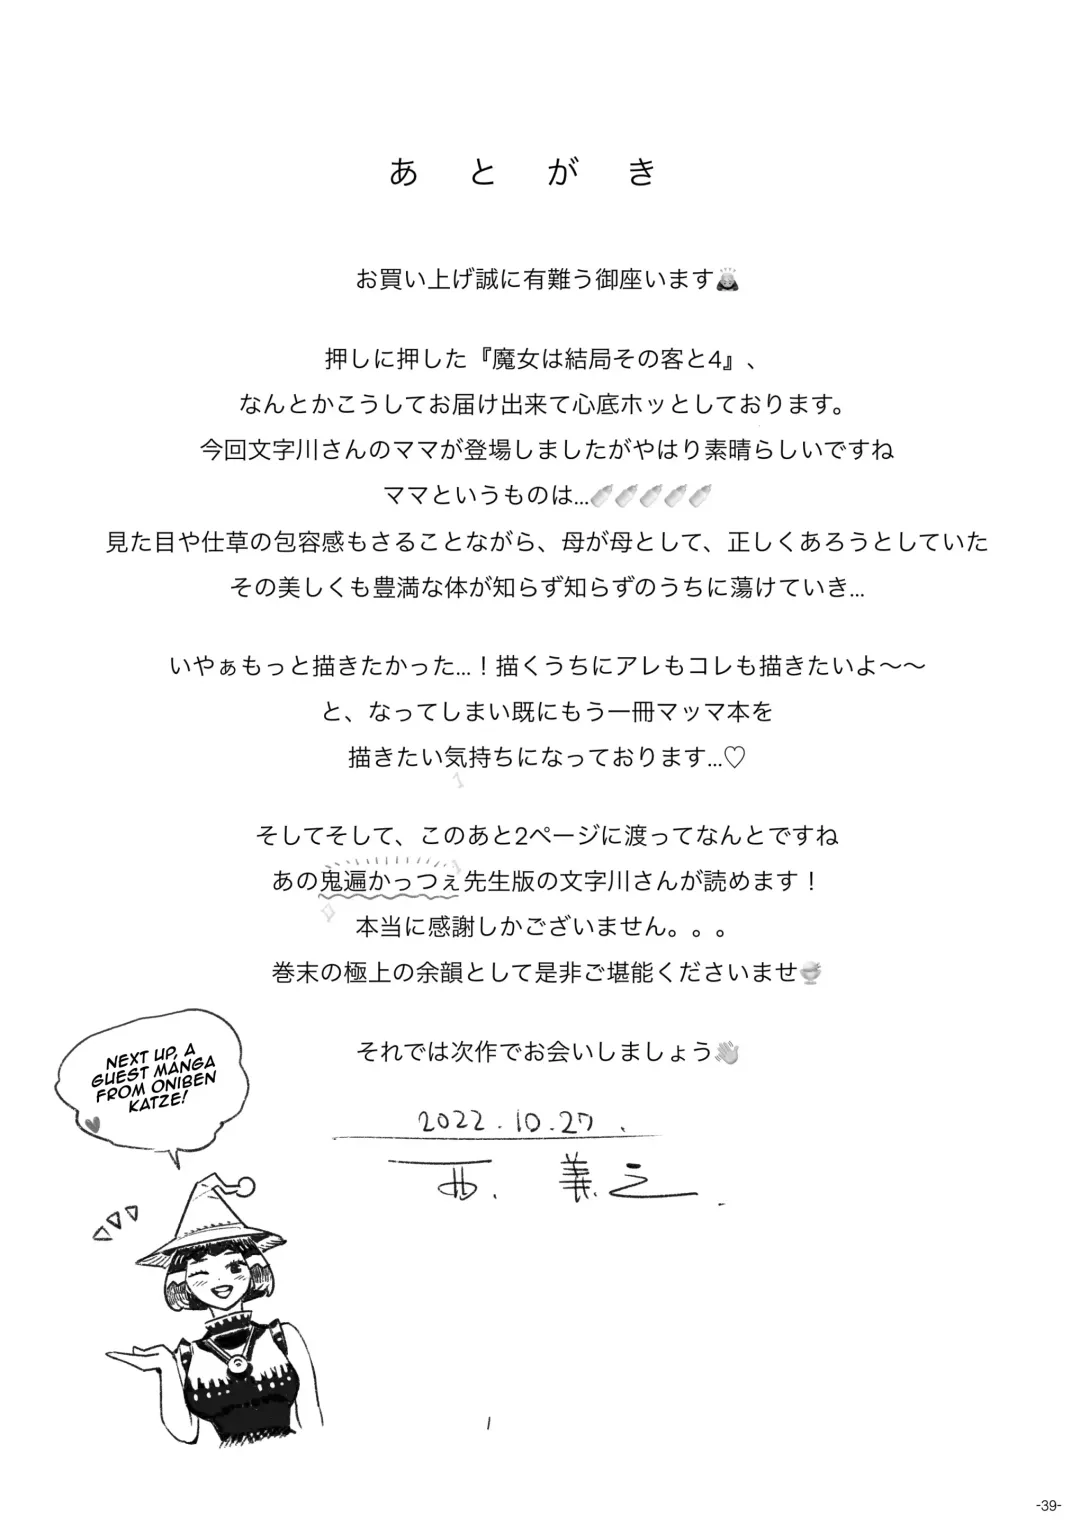 あとがき
お買い上げ誠に有難う御座います🙇
押しに押した『魔女は結局その客と4』、
なんとかこうしてお届け出来て心底ホッとしております。
今回文字川さんのママが登場しましたがやはり素晴らしいですね
ママというものは...🍼🍼🍼🍼🍼
見た目や仕草の包容感もさることながら、母が母として、正しくあろうとしていた
その美しくも豊満な体が知らず知らずのうちに蕩けていき...
いやぁもっと描きたかった...！描くうちにアレもコレも描きたいよ〜〜
と、なってしまい既にもう一冊マッマ本を
描きたい気持ちになっております...♡
そしてそして、このあと2ページに渡ってなんとですね
あの鬼遍かっつぇ先生版の文字川さんが読めます！
本当に感謝しかございません。。。
巻末の極上の余韻として是非ご堪能くださいませ🍚
それでは次作でお会いしましょう👋
2022.10.27.
西.義之.
NEXT UP, A
GUEST MANGA
FROM ONIBEN
KATZE!
-39-